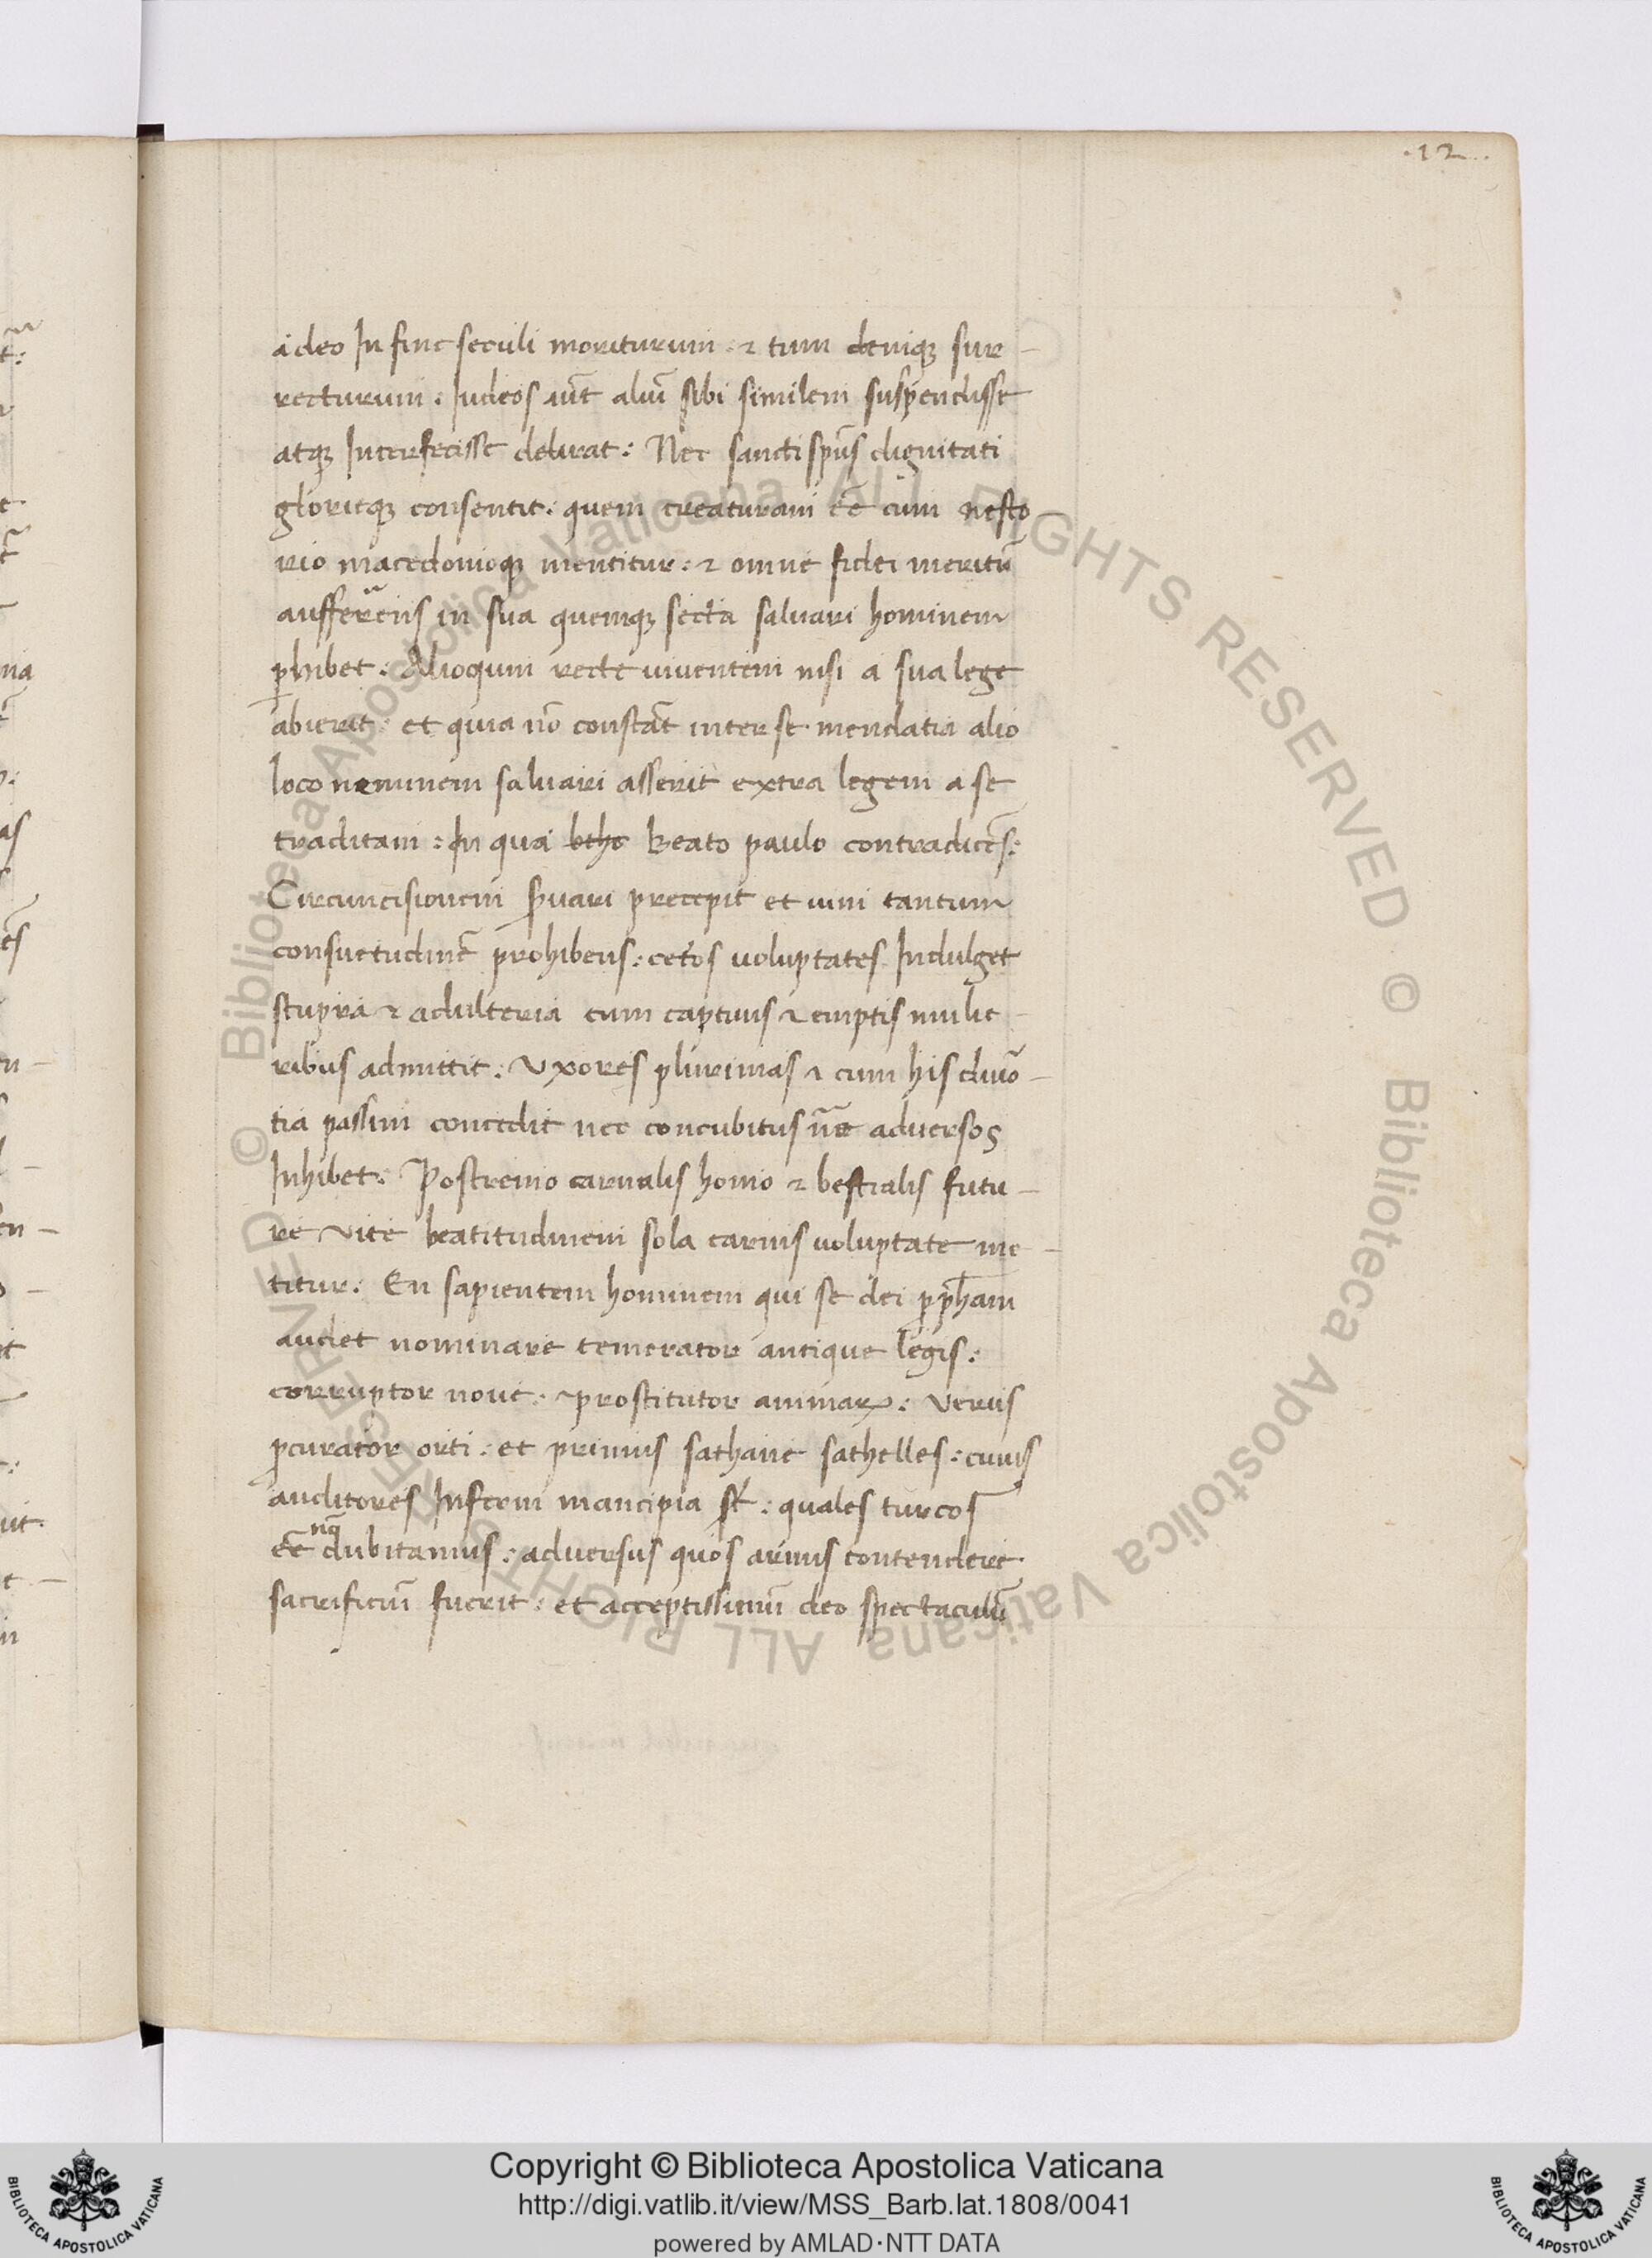 .12..
a deo In fine seculi moriturum . & tum deniqꝫ sur-
recturum : Iudeos aūt aliū sibi similem suspendisse
atqꝫ Interfecisse delirat : Nec sancti spūs dignitati
glorieqꝫ consentit : quem creaturam eē cum nesto
rio macedonioqꝫ mentitur : & omne fidei meritū
aufferens in sua quemqꝫ secta saluari hominem
ꝑhibet : Alioquin recte viventem nisi a sua lege
abierit : et quia nō constāt inter se mendatia alio
loco neminem saluari asserit extra legem a se
traditam : In qua Beato paulo contradicēs :
Circuncisionem ẜuari precepit et vini tantum
consuetudinē prohibens : cet̄os voluptates Indulget
stupra & adulteria cum captivis & emptis mulie-
ribus admittit : Vxores plurimas & cum his divō-
tia passim concedit nec concubitus nāe adversos
Inhibet : Postremo carnalis homo & bestialis futu-
re vite beatitudinem sola carnis voluptate me-
titur : En sapientem hominem qui se dei ꝓpħam
audet nominare temerator antique legis :
corruptor nove : prostitutor animaꝝ : Verus
ꝓcurator orti : et primus sathane sathelles : cuius
auditores Inferni mancipia st̄ : quales turcos
eē nō dubitamus : adversus quos armis contendere
sacrificiū fuerit : et acceptissimū deo spectaculū
© Biblioteca Apostolica Vaticana ALL RIGHTS RESERVED
© Biblioteca Apostolica Vaticana ALL RIGHTS RESERVED
Copyright © Biblioteca Apostolica Vaticana
http://digi.vatlib.it/view/MSS_Barb.lat.1808/0041
powered by AMLAD·NTT DATA
BIBLIOTECA APOSTOLICA VATICANA
BIBLIOTECA APOSTOLICA VATICANA